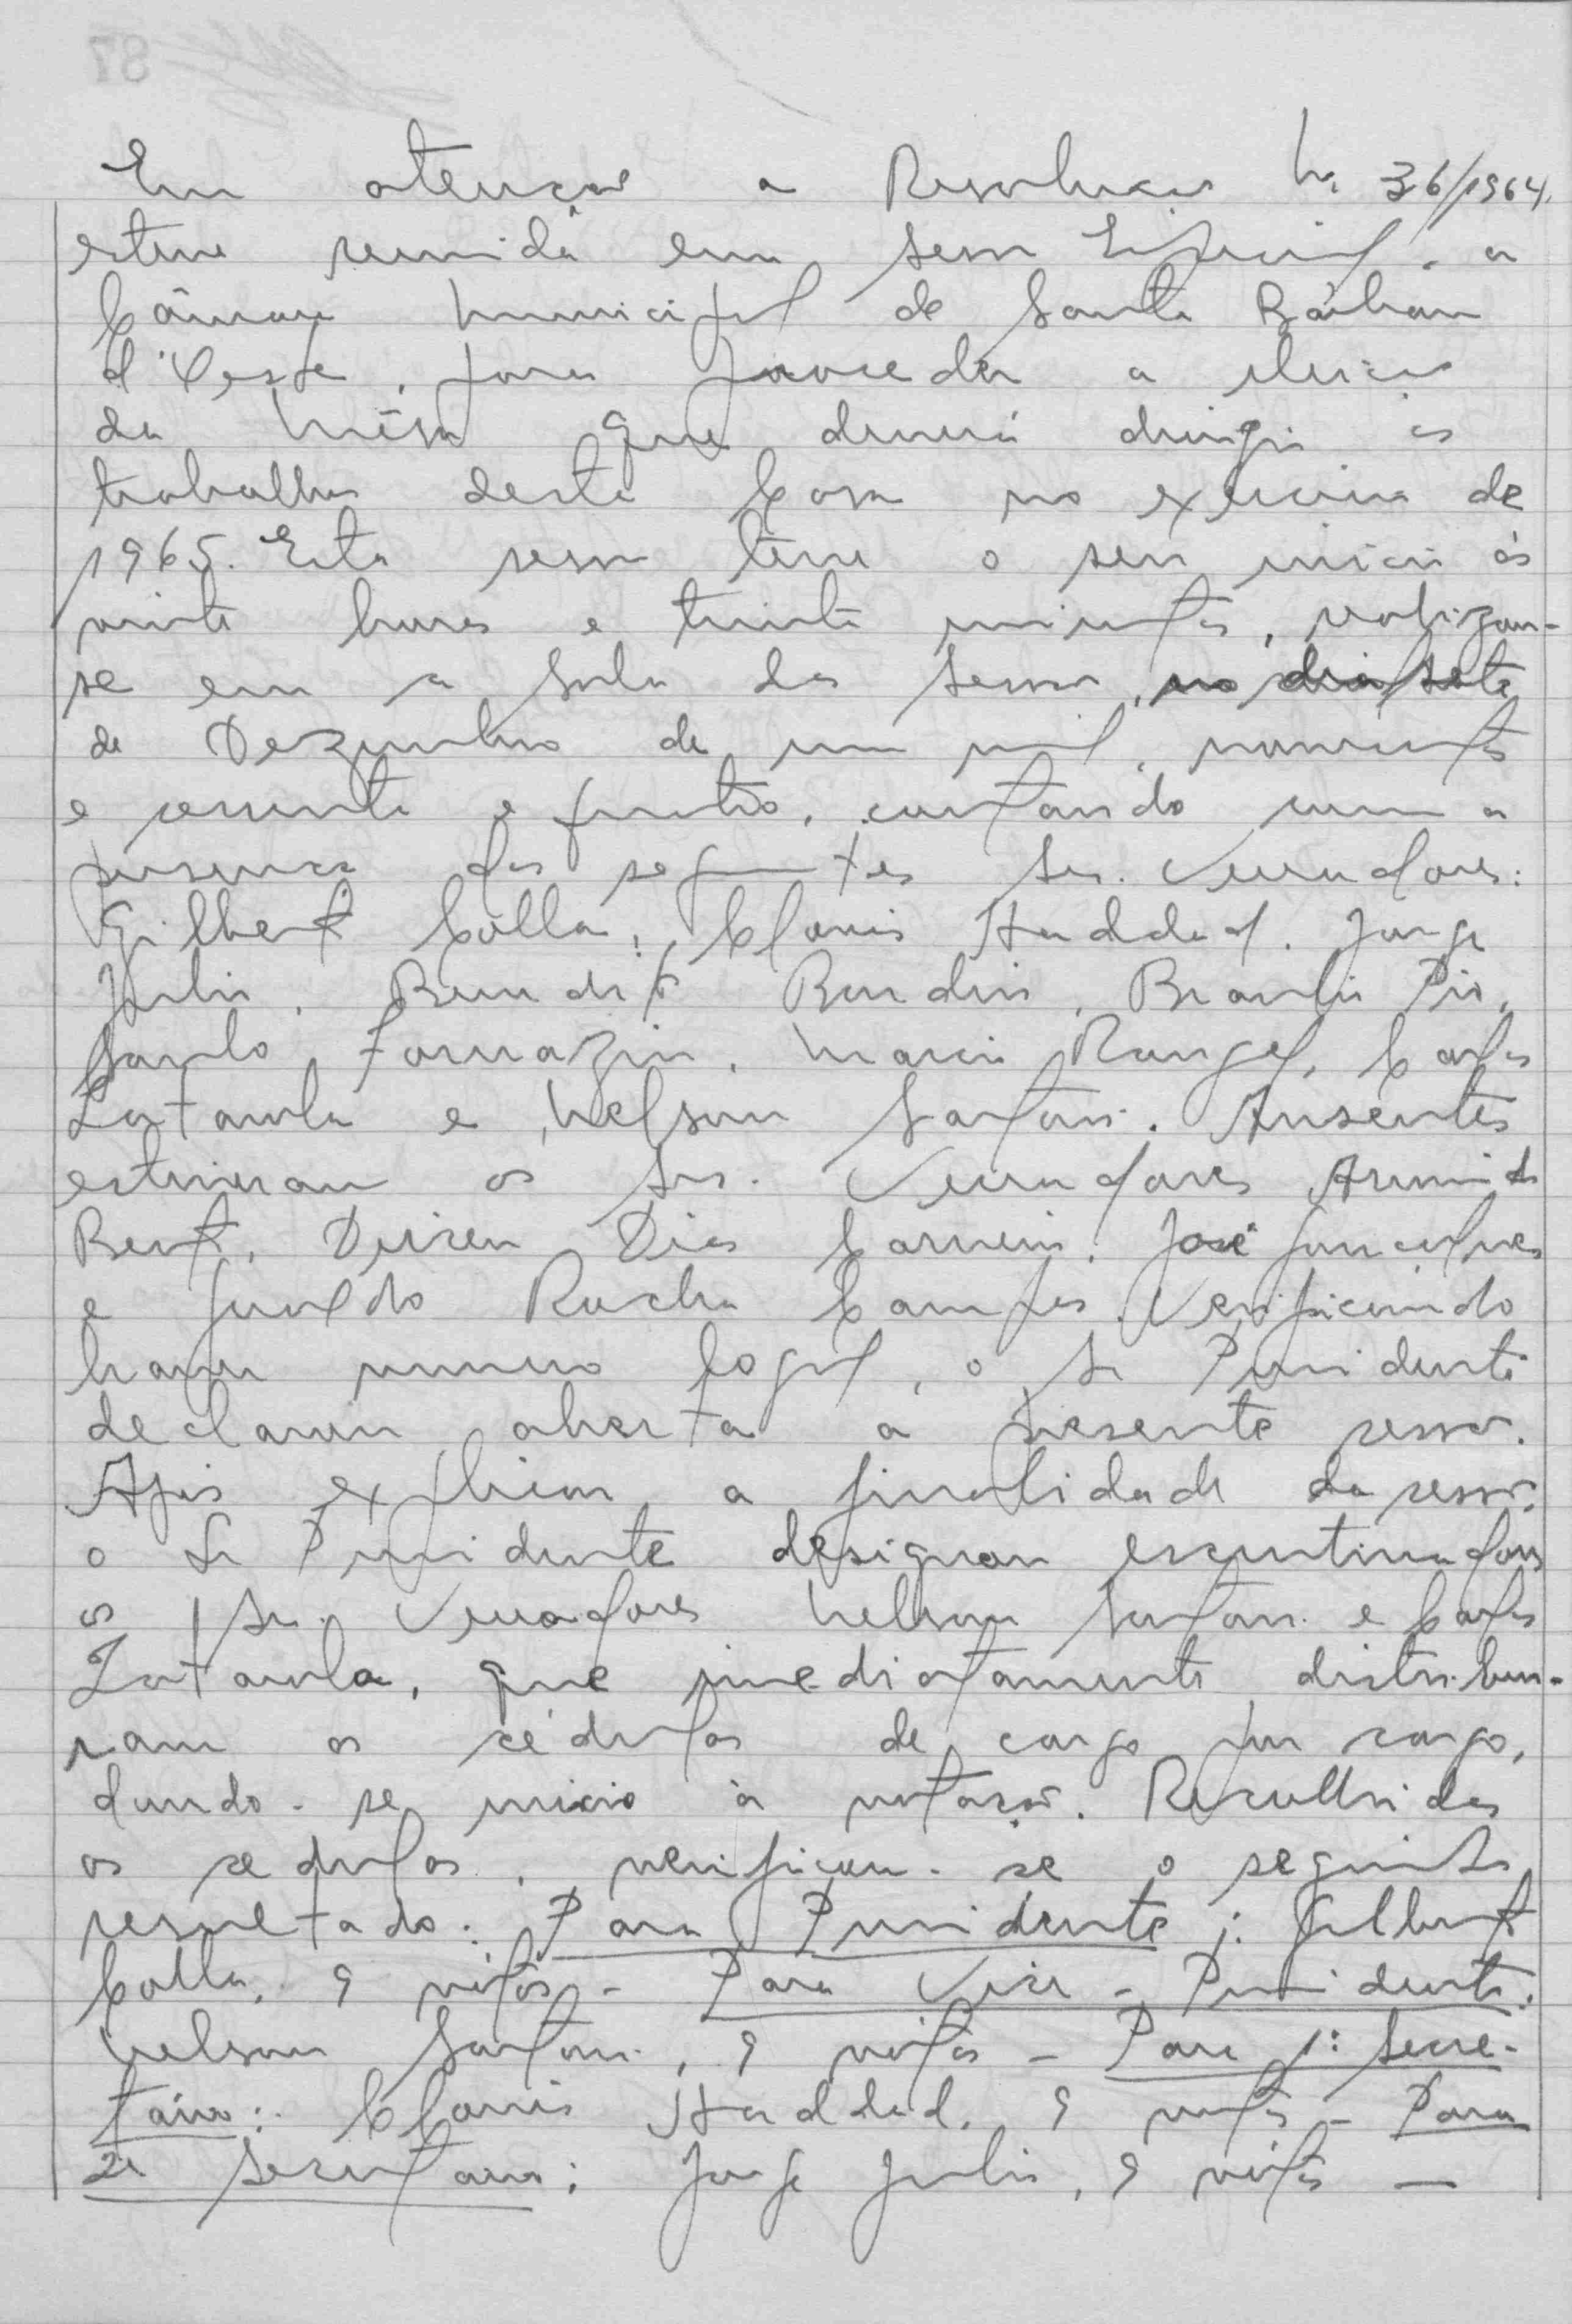 Em atenção a Resolução No 36/1964,
esteve reunida em Sessão Especial, a
Câmara Municipal de Santa Bárbara
d'Oeste, para proceder a eleição
da Mêsa que deverá dirigir os
trabalhos desta Casa no exercicio de
1965. Esta sessão teve o seu inicio ás
vinte horas e trinta minutos, realizan-
se em a Sala das Sessões, no dia sete
de Dezembro de um mil, novecentos
e sessenta e quatro, contando com a
presença dos seguintes Srs. Vereadores:
Gilberto Colla, Clovis Haddad, Jorge
Julio, Benedito Bordin, Brasilio Pio,
Santo Fornazin, Marcio Rangel, Carlos
Latarola e Nelson Sartori. Ausentes
estiveram os Srs. Vereadores Arminio
Bento, Dirceu Dias Carneiro, José Gonçalves
e Geraldo Rocha Campos. Verificando
haver numero legal, o Sr Presidente
declarou aberta a presente sessão.
Após explicar a finalidade da sessão,
o Sr Presidente designou escrutinadores
os Srs. Vereadores Nelson Sartori e Carlos
Latarola, que imediatamente distribui-
ram as cédulas de cargo por cargo,
dando-se inicio à votação. Recolhidas
as cedulas, verificou-se o seguinte
resultado: Para Presidente: Gilberto
Colla, 9 votos - Para Vice-Presidente:
Nelson Sartori, 9 votos - Para 1º Secre-
tário: Clovis Haddad, 9 votos - Para
2º Secretario: Jorge Julio, 9 votos —